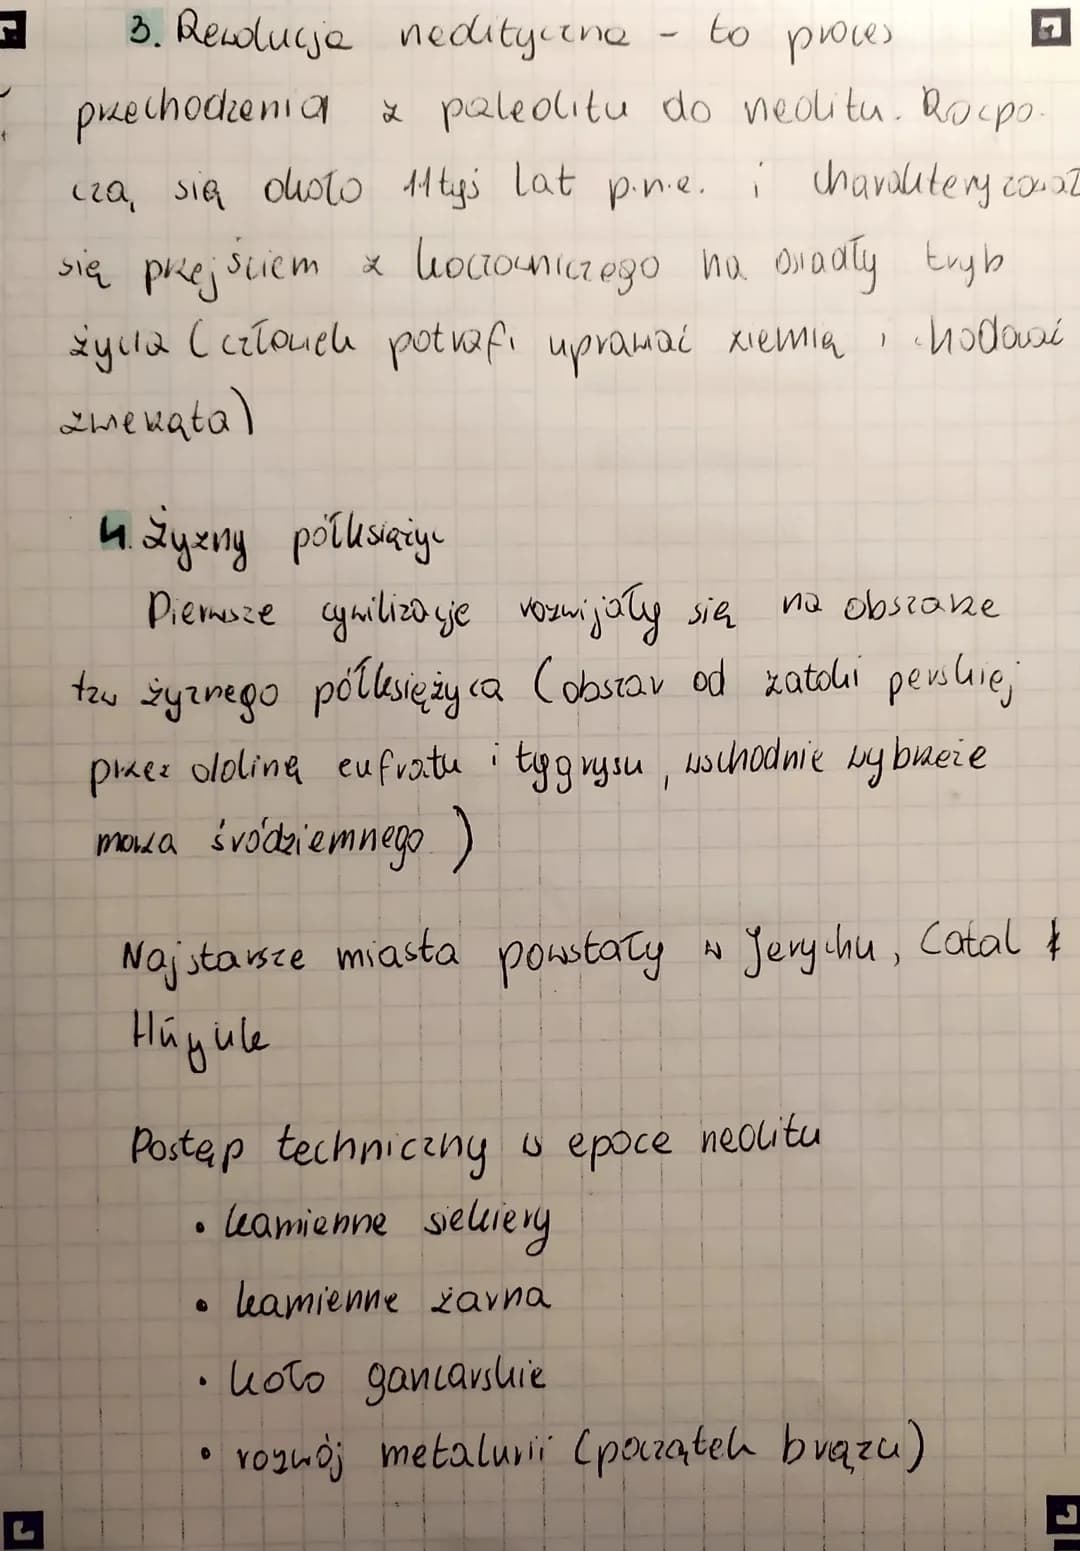 3. Rewolucja neolityczna - to proces
przechodzenia z paleolitu do neolitu. Rozpo-
czą się około 11 tyś lat p.n.e. i charakteryzował
się przejściem z koczowniczego na osiadły tryb
życia (człowiek potrafi uprawiać ziemię i hodować
zwierzęta)
4. Żyzny półksiężyc
Pierwsze cywilizacje rozwijały się na obszarze
tzw żyznego półksiężyca (obszar od zatoki perskiej
przez dolinę eufratu i tygrysu, wschodnie wybrzeże
morza śródziemnego)
Najstarsze miasta powstały w Jerychu, Catal
Hüyük
Postęp techniczny w epoce neolitu
• kamienne siekiery
• kamienne żarna
• koło garncarskie
• rozwój metalurii (początek brązu)